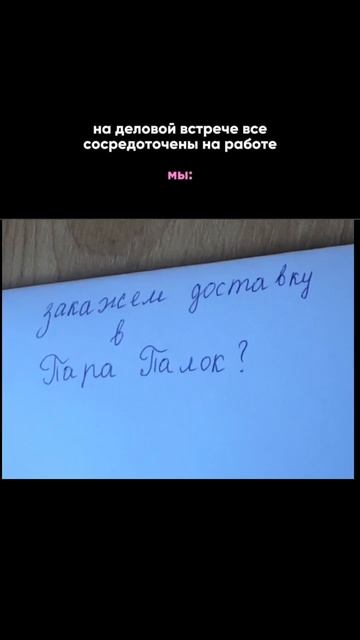 на деловой встрече все
сосредоточены на работе
мы:
закажем доставку
в
Пара Палок?